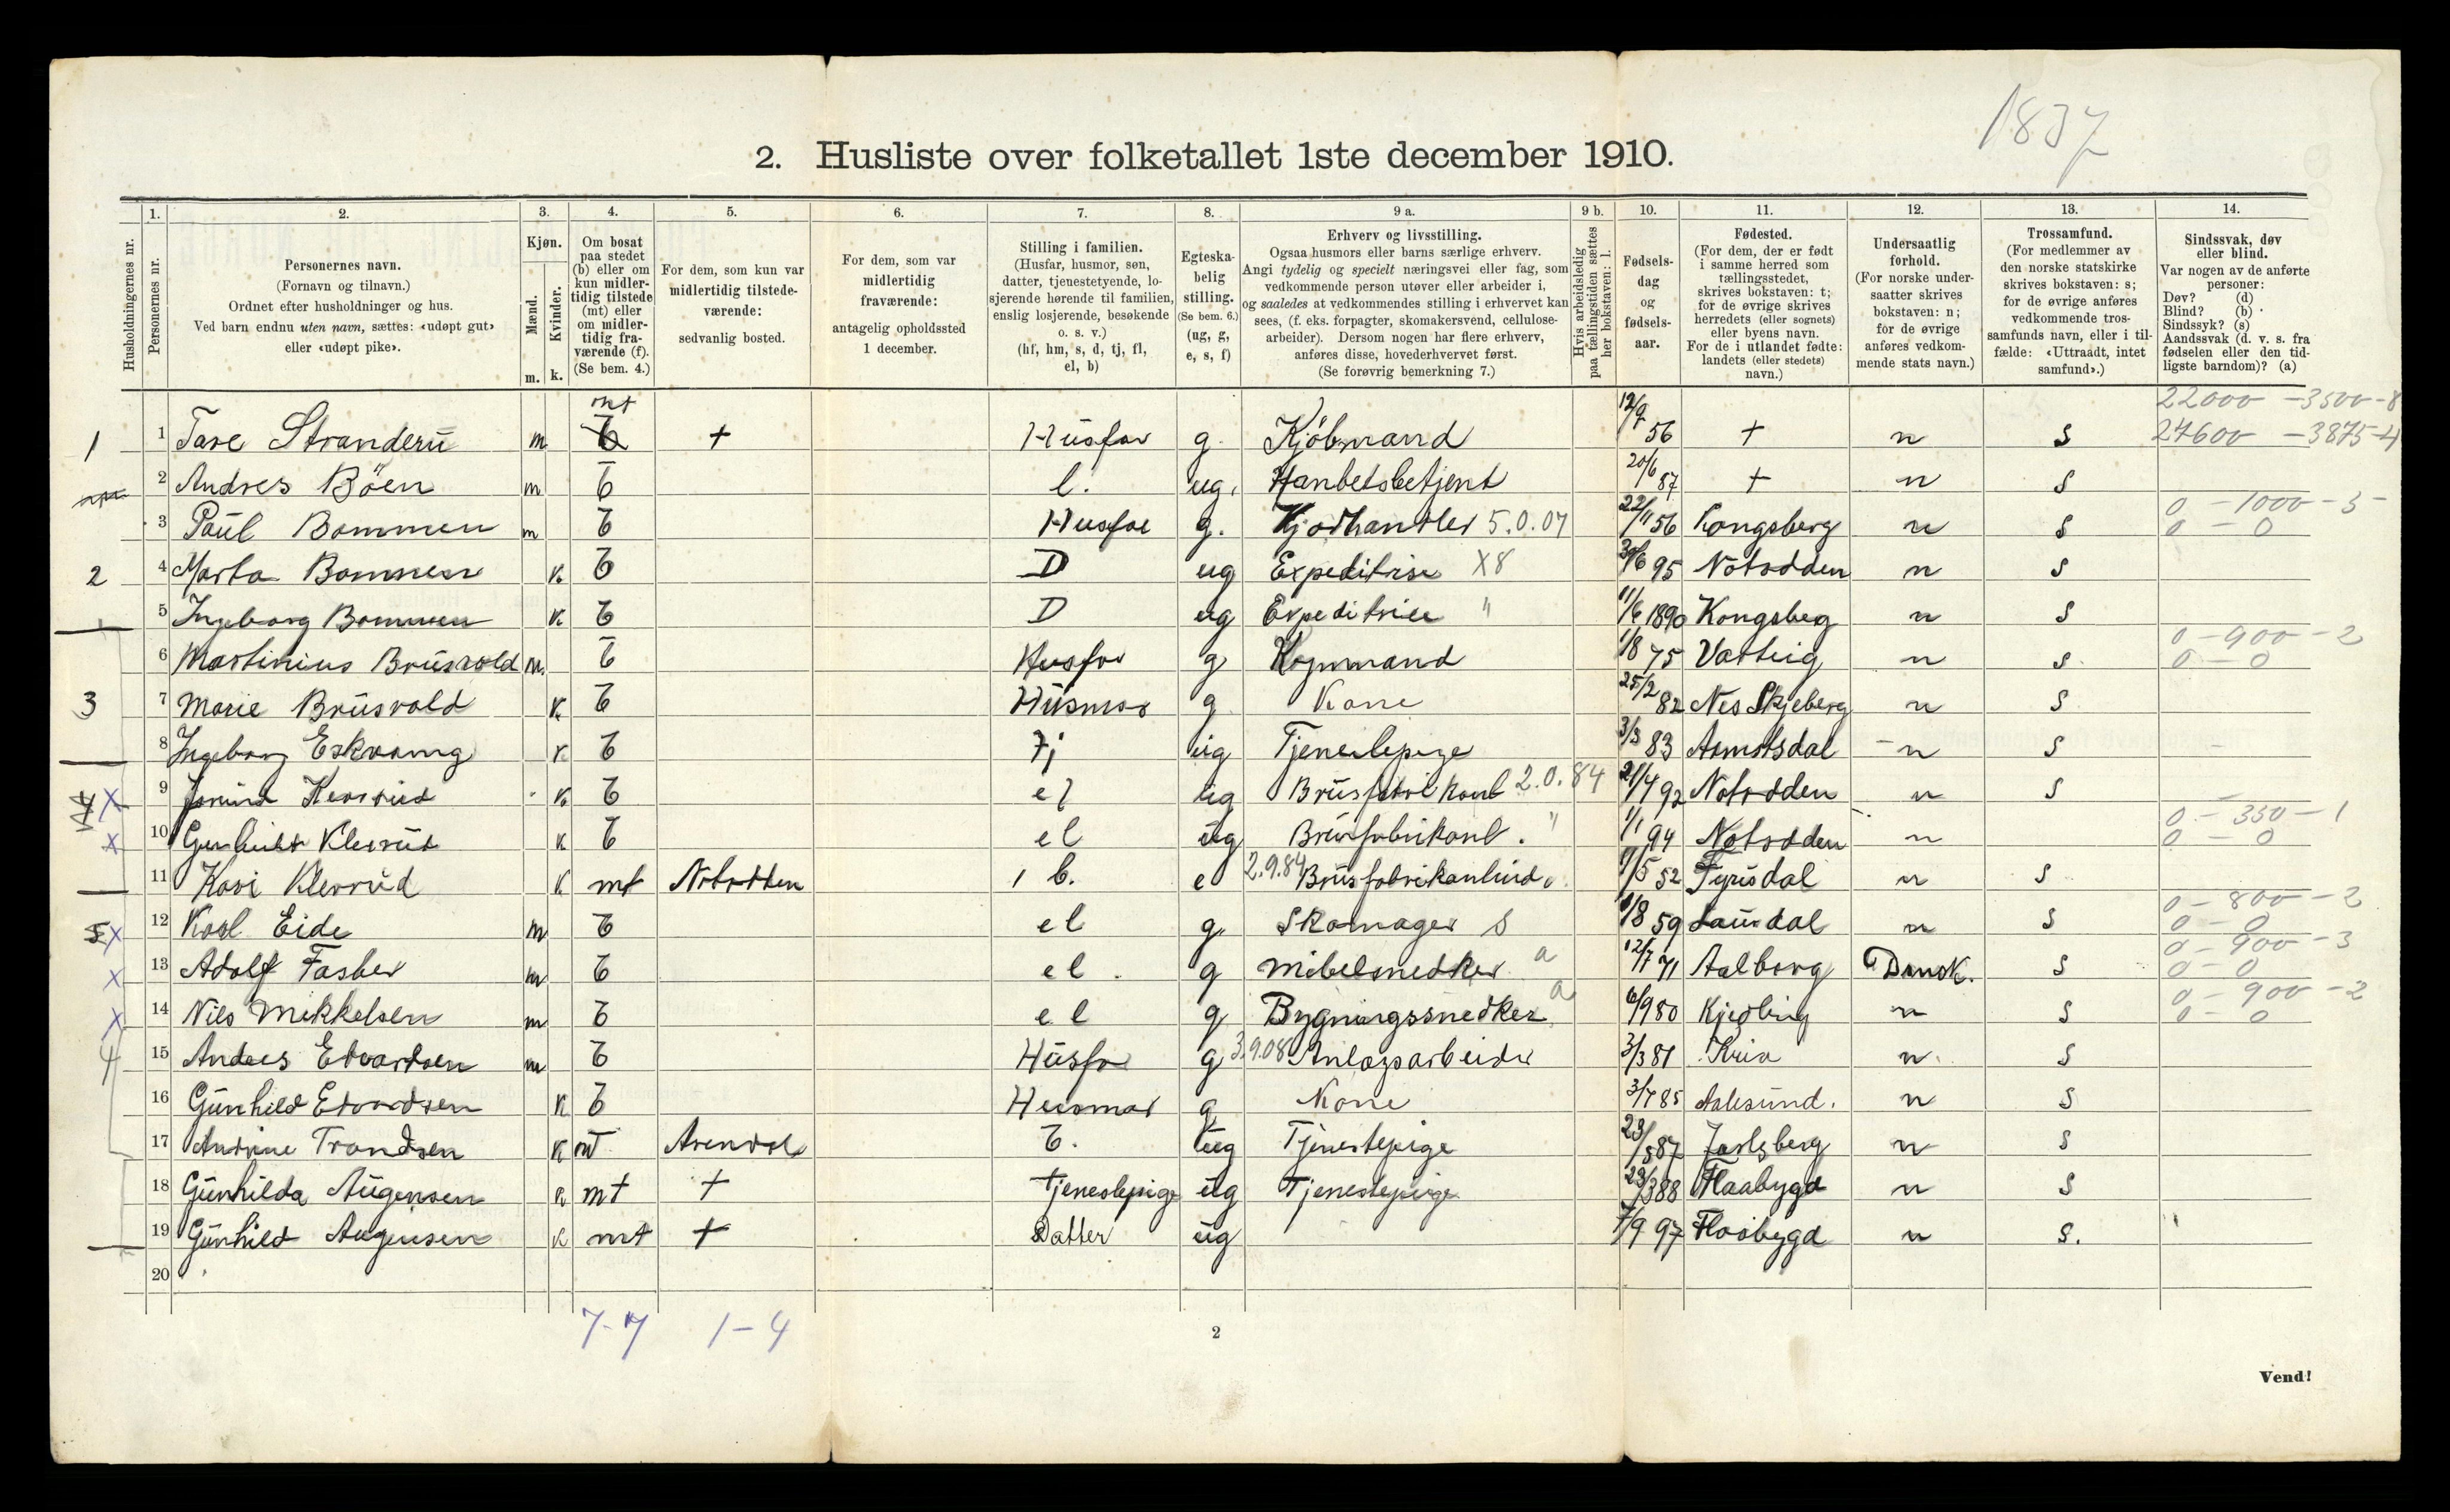 1837
2. Husliste over folketallet 1ste december 1910.
Husholdningernes nr.
1. Personernes nr.
2. Personernes navn. (Fornavn og tilnavn.) Ordnet efter husholdninger og hus. Ved barn endnu uten navn, sættes: «udøpt gut» eller «udøpt pike».
3. Kjøn. Mænd. m. Kvinder. k.
4. Om bosat paa stedet (b) eller om kun midlertidig tilstede (mt) eller om midlertidig fraværende (f). (Se bem. 4.)
5. For dem, som kun var midlertidig tilstedeværende: sedvanlig bosted.
6. For dem, som var midlertidig fraværende: antagelig opholdssted 1 december.
7. Stilling i familien. (Husfar, husmor, søn, datter, tjenestetyende, losjerende hørende til familien, enslig losjerende, besøkende o. s. v.) (hf, hm, s, d, tj, fl, el, b)
8. Egteskabelig stilling. (Se bem. 6.) (ug, g, e, s, f)
9 a. Erhverv og livsstilling. Ogsaa husmors eller barns særlige erhverv. Angi tydelig og specielt næringsvei eller fag, som vedkommende person utøver eller arbeider i, og saaledes at vedkommendes stilling i erhvervet kan sees, (f. eks. forpagter, skomakersvend, cellulosearbeider). Dersom nogen har flere erhverv, anføres disse, hovederhvervet først. (Se forøvrig bemerkning 7.)
9 b. Hvis arbeidsledig paa tællingstiden sættes her bokstaven: l.
10. Fødselsdag og fødselsaar.
11. Fødested. (For dem, der er født i samme herred som tællingsstedet, skrives bokstaven: t; for de øvrige skrives herredets (eller sognets) eller byens navn. For de i utlandet fødte: landets (eller stedets) navn.)
12. Undersaatlig forhold. (For norske undersaatter skrives bokstaven: n; for de øvrige anføres vedkommende stats navn.)
13. Trossamfund. (For medlemmer av den norske statskirke skrives bokstaven: s; for de øvrige anføres vedkommende trossamfunds navn, eller i tilfælde: «Uttraadt, intet samfund».)
14. Sindssvak, døv eller blind. Var nogen av de anførte personer: Døv? (d) Blind? (b) Sindssyk? (s) Aandssvak (d. v. s. fra fødselen eller den tidligste barndom)? (a)
22000 - 3500 - 8
1 1 Tare Stranderu m mt t Husfar g. Kjöbmand 12/9 56 t n s 27600 - 3875-4
2 Andres Böen m b l. ug. Hanbetsbetjent 20/6 87 t n s
0 - 1000 - 5
3 Paul Bommen m b Husfar g. Kjödhandler 5.0.07 22/11 56 Kongsberg n s 0 - 0
2 4 Marta Bommen k b D ug Expeditrise X8 30/6 95 Notodden n s
5 Ingeborg Bommen k b D ug Expeditrise " 11/6 1890 Kongsberg n s
0 - 900 - 2
6 Martinius Brusvold m b Husfar g Kopmand 1/8 75 Varteig n s 0 - 0
3 7 Marie Brusvold k b Husmor g Kone 25/2 82 Nes Skjeberg n s
8 Ingeborg Eskvamg k b Tj ug Tjenestepige 3/3 83 n s
x 9 k b el ug 2.0.84 21/4 92 Notodden n s
0 - 350 - 1
x 10 Gunhild Klevrud k b el ug Brusfabrikant. " 1/1 94 Notodden n 0 - 0
11 Kari Klevrud k mt Notodden b. e 2.9.84 52 Tyrisdal n s
0 - 800 - 2
5 x 12 Karl Eide m b el g Skomager s 1/8 59 Laurdal n s 0 - 0
0 - 900 - 3
x 13 Adolf Fasber m b el. g Möbelsnedker a 12/7 71 Aalborg Dansk. s 0 - 0
0 - 900 - 2
x 14 Nils Mekkelsen m b el g Bygningssnedker a 6/9 80 n s 0 - 0
4 15 Andres Edvartsen m b Husfar g 3.9.08 Anlægsarbeider 3/3 81 Kria n. s
16 Gunhild Edvardsen k b Husmor g Kone 3/7 85 Aalesund. n s
17 Andrine Trondsen k mt Arendal b. ug Tjenestepige 23/5 87 Jarlsberg n s
18 Gunhilda Augensen k mt t Tjenestepige ug Tjenestepige 23/3 88 Flaabygd n s
19 Gunhild Augensen k mt t Datter ug 7/9 97 Flaabygd n s.
20
7-7 1-4
2
Vend!